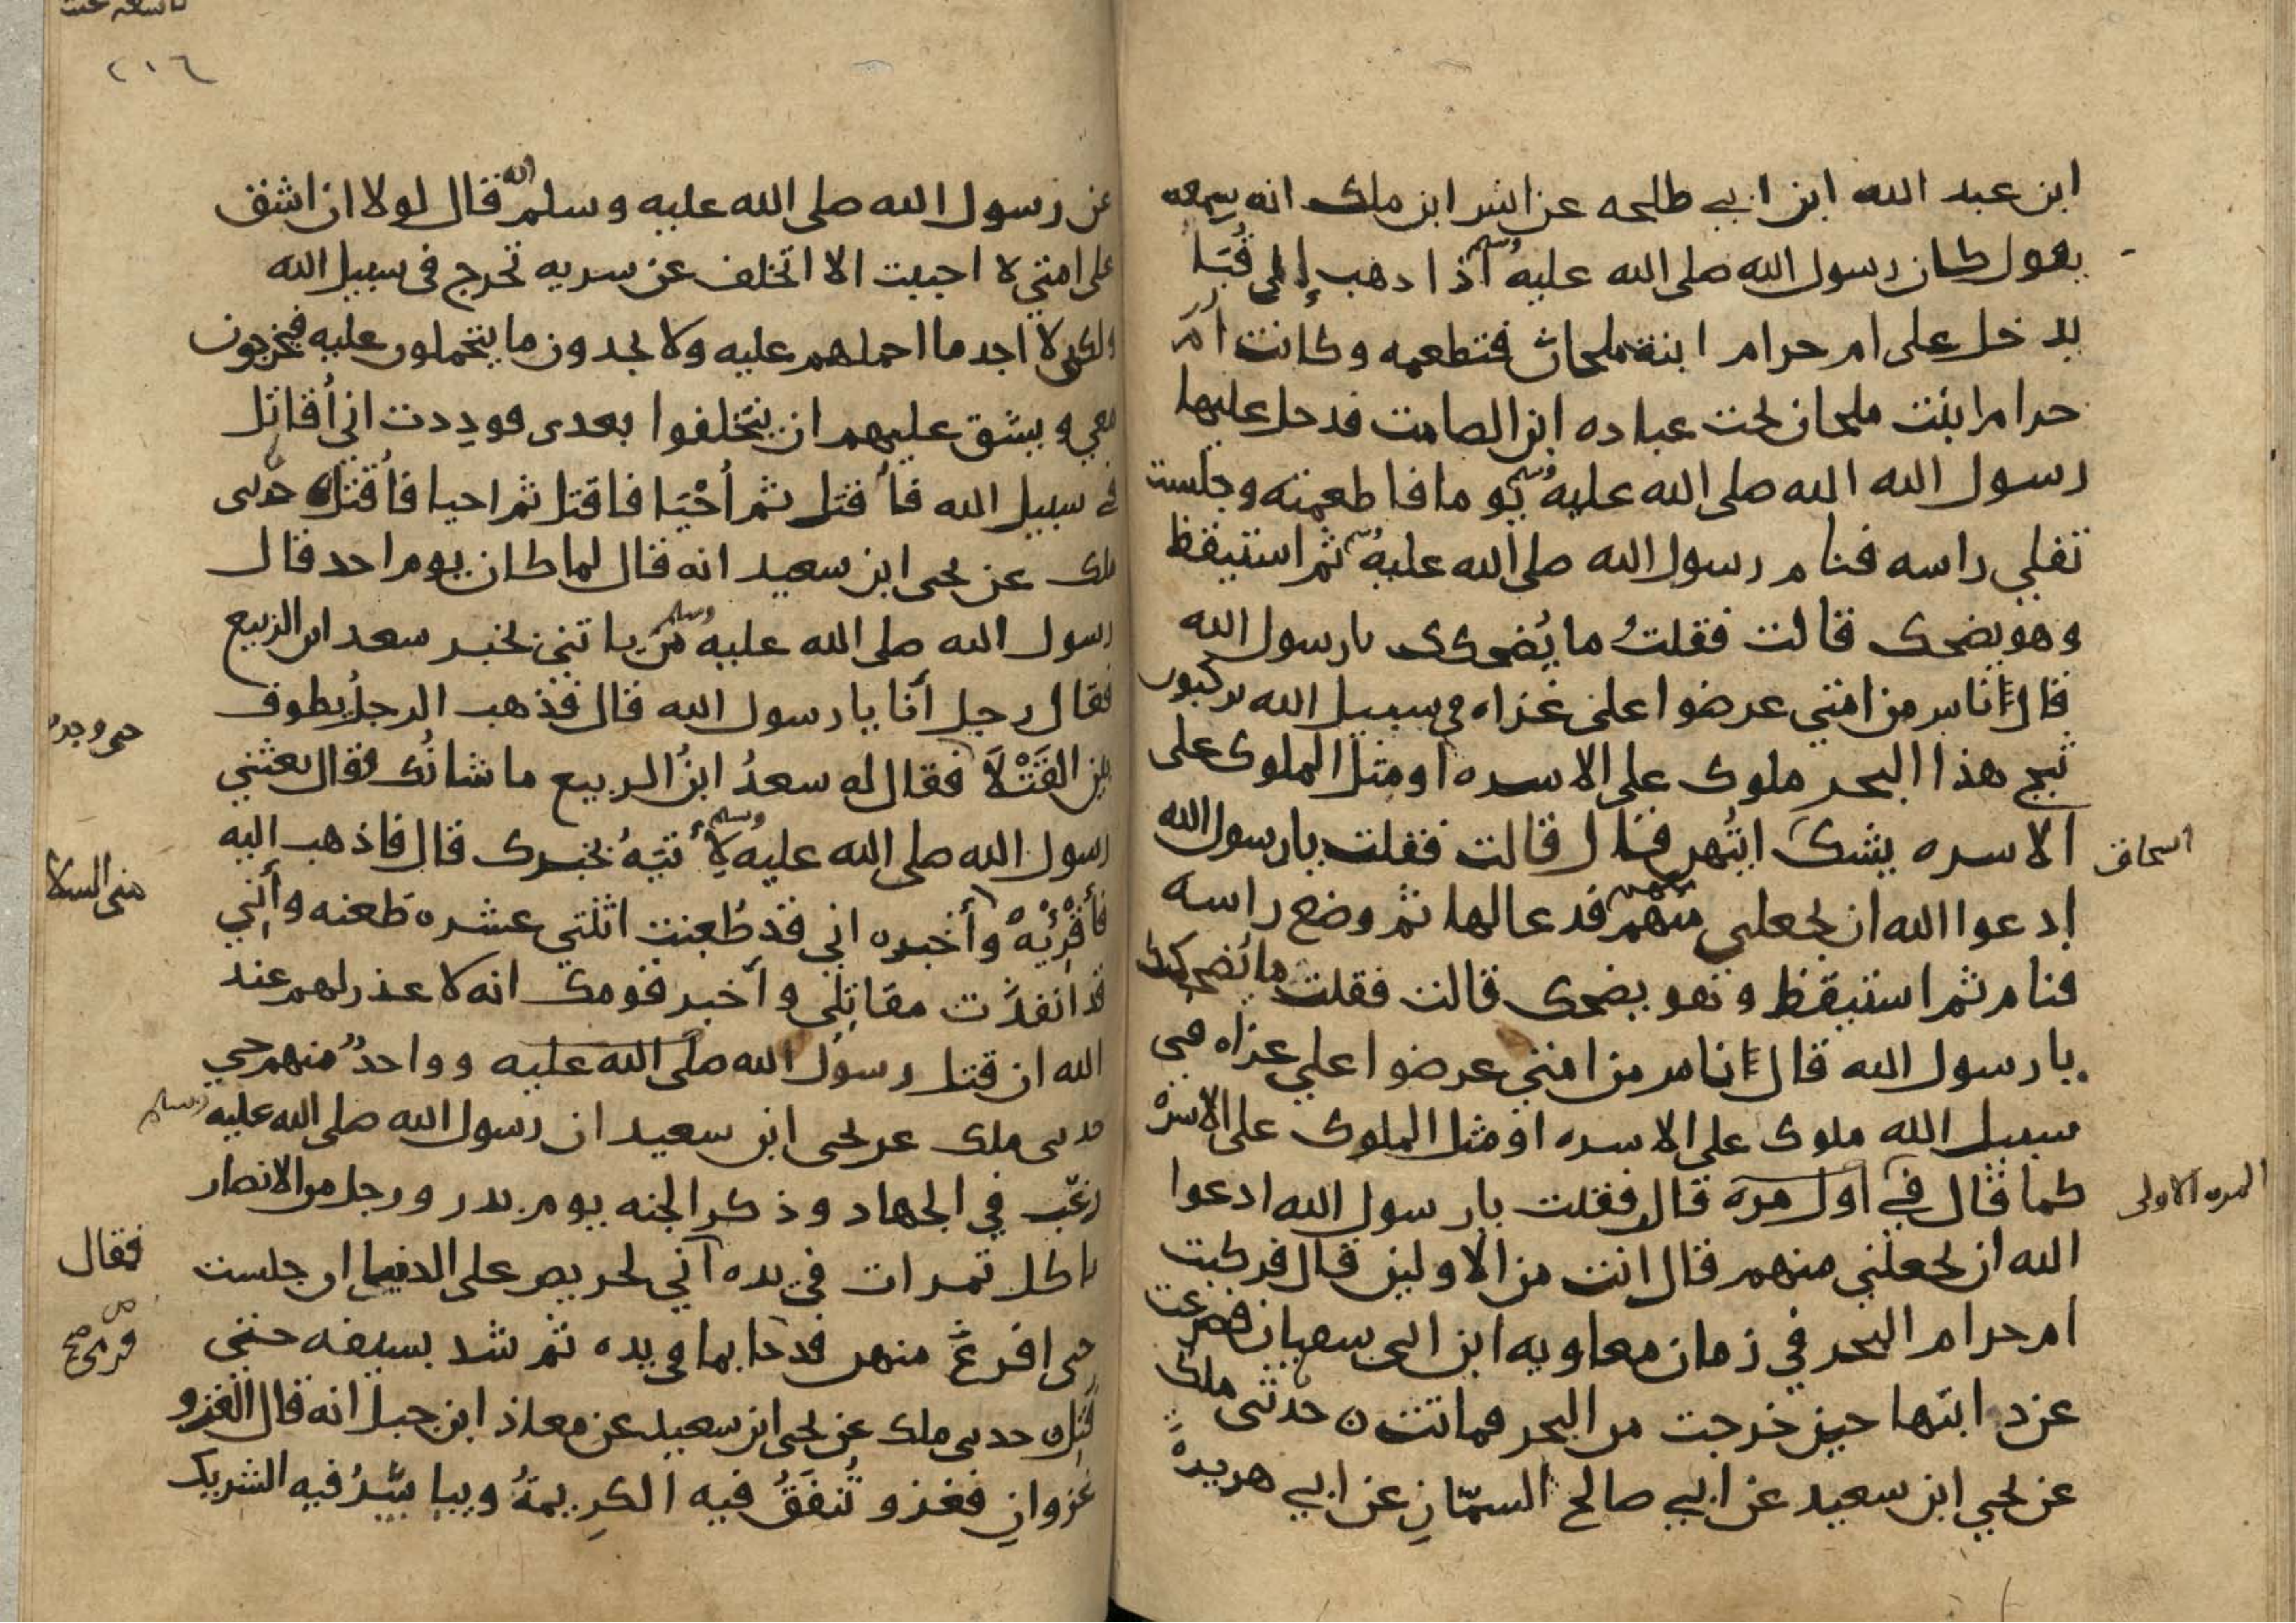 ابن عبد الله ابن ابي طلحه عن انس ابن ملك انه سمعه
يقول كان رسول الله صلى الله عليه وسلم اذا ذهب إلى قُبَا
يدخل على ام حرام ابنة ملحان فتطعمه وكانت ام
حرام ابنت ملحان تحت عباده ابن الصامت فدخل عليها
رسول الله صلى الله عليه وسلم يوما فاطعمته وجلست
تفلي راسه فنام رسول الله صلى الله عليه وسلم ثم استيقظ
وهو يضحك قالت فقلتُ ما يُضحكك يا رسول الله
قال اناس من امتي عرضوا على غزاه في سبيل الله يركبون
ثبج هذا البحر ملوك على الاسره او مثل الملوك على
الاسره يشك ايتُهن قال قالت فقلت يا رسول الله
اسحاق
ادعوا الله ان يجعلني منهم فدعا لها ثم وضع راسه
فنام ثم استيقظ وهو يضحك قالت فقلت ما يُضحكك
يا رسول الله قال اناس من امتي عرضوا علي غزاه في
سبيل الله ملوك على الاسره او مثل الملوك على الاسره
كما قال في اول مرة قال فقلت يا رسول الله ادعوا
المره الاولى
الله ان يجعلني منهم قال انت من الاولين قال فركبت
ام حرام البحر في زمان معاويه ابن ابي سفيان فصرعت
عن دابتها حين خرجت من البحر فماتت ه حدثني ملك
عن يحيي ابن سعيد عن ابي صالح السمّانِ عن ابي هريرة
٢١٦
عن رسول الله صلى الله عليه وسلم انه قال لولا ان اشق
على امتي لا احببت الا اتخلف عن سريه تخرج في سبيل الله
ولكني لا اجد ما احملهم عليه ولا يجدون ما يتحملون عليه فيخرجون
معي ويشق عليهم ان يتخلفوا بعدي فودِدت اني أُقاتل
في سبيل الله فأُقتل ثم أُحْيَا فاقتل ثم احيا فأُقتل ه حدثني
ملك عن يحيى ابن سعيد انه قال لما كان يوم احد قال
رسول الله صلى الله عليه وسلم مَن ياتني بخبر سعد ابن الربيع
فقال رجل أنا يا رسول الله قال فذهب الرجلُ يطوف
حتى وجده
بين القَتْلَا فقال له سعدُ ابنُ الربيع ما شانُك فقال بعثني
رسول الله صلى الله عليه وسلم لِأتيَهُ بخبرك قال فاذهب اليه
مني السلا
فأَقْرِيْهْ وأخبره اني قد طُعِنت اثنتي عشره طعنه وأنني
قد انفذَت مقاتِلي وأَخبر قومك انه لا عذر لهم عند
الله ان قتل رسول الله صلى الله عليه وواحدٌ منهم حي
حدثني ملك عن يحيى ابن سعيد ان رسول الله صلى الله عليه وسلم
رغّب في الجهاد وذكر الجنه يوم بدر ورجل من الانصار
ياكل تمرات في يده اني لحريص على الدنيا ان جلست
فقال
حتى افرغَ منهن فدحا بما في يده ثم شد بسيفه حتى
فرمى صح
قُتِل ه حدثني ملك عن يحيى ابن سعيد عن معاذ ابن جبل انه قال الغزو
غزوانِ فغزو تُنفَقُ فيه الكرِيمةُ ويياسَرُ فيه الشريك